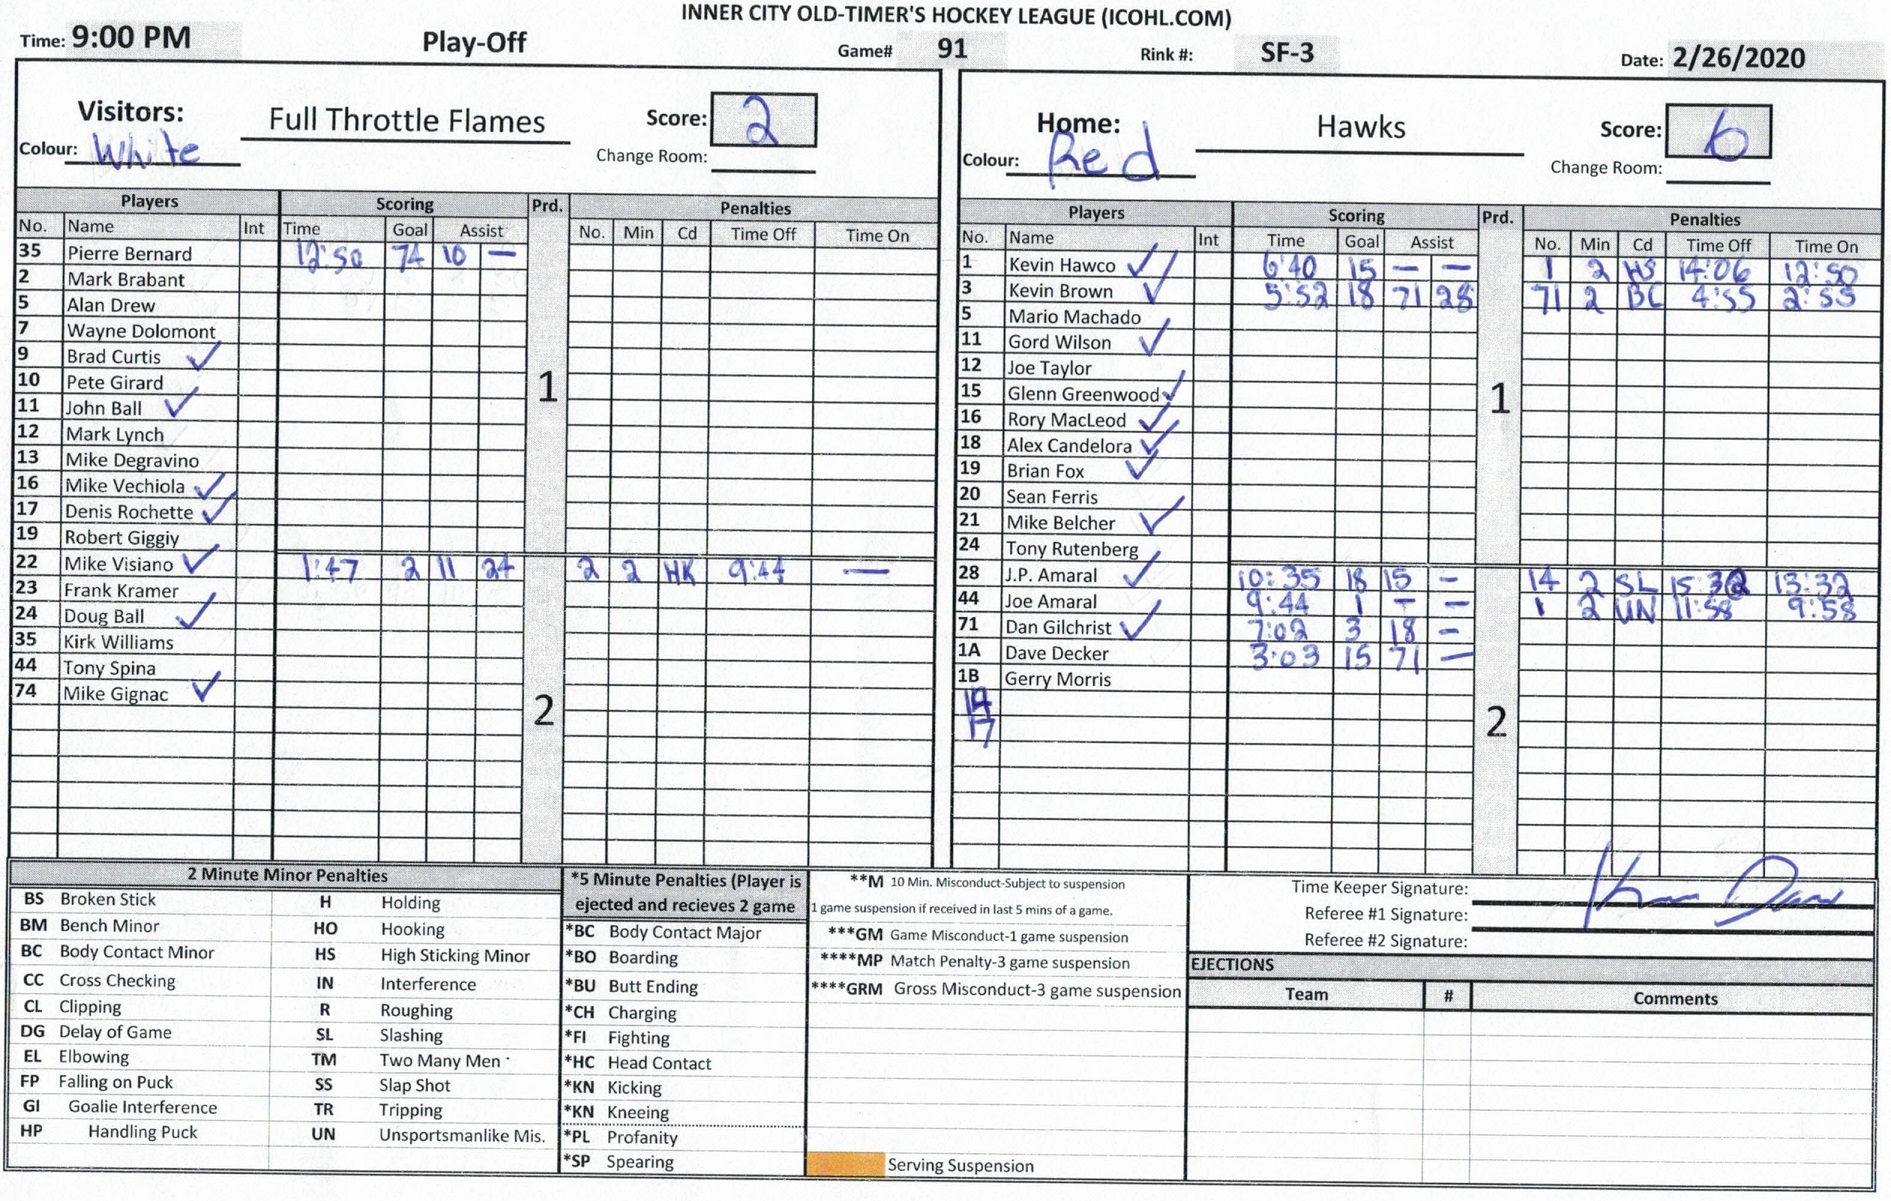 INNER CITY OLD-TIMER'S HOCKEY LEAGUE (ICOHL.COM)
Time: 9:00 PM Play-Off Game# 91 Rink #: SF-3 Date: 2/26/2020
Visitors: Full Throttle Flames Score: 2
Colour: White Change Room:
Players Scoring Prd. Penalties
No. Name Int Time Goal Assist No. Min Cd Time Off Time On
35 Pierre Bernard 12:50 74 10 —
2 Mark Brabant
5 Alan Drew
7 Wayne Dolomont
9 Brad Curtis ✓
10 Pete Girard
1
11 John Ball ✓
12 Mark Lynch
13 Mike Degravino
16 Mike Vechiola ✓
17 Denis Rochette ✓
19 Robert Giggiy
22 Mike Visiano ✓ 1:47 2 11 24 2 2 HK 9:44 —
23 Frank Kramer
24 Doug Ball ✓
35 Kirk Williams
44 Tony Spina
74 Mike Gignac ✓
2
Home: Hawks Score: 6
Colour: Red Change Room:
Players Scoring Prd. Penalties
No. Name Int Time Goal Assist No. Min Cd Time Off Time On
1 Kevin Hawco ✓ 6:40 15 — — 1 2 HS 14:06 12:50
3 Kevin Brown ✓ 5:52 18 71 28 71 2 BC 4:55 2:55
5 Mario Machado
11 Gord Wilson ✓
12 Joe Taylor
15 Glenn Greenwood ✓
1
16 Rory MacLeod ✓
18 Alex Candelora ✓
19 Brian Fox ✓
20 Sean Ferris
21 Mike Belcher ✓
24 Tony Rutenberg
28 J.P. Amaral ✓ 10:35 18 15 – 14 2 SL 15:32 13:32
44 Joe Amaral 9:44 1 — — 1 2 UN 11:58 9:58
71 Dan Gilchrist ✓ 7:02 3 18 –
1A Dave Decker 3:03 15 71 —
1B Gerry Morris
14
17
2
2 Minute Minor Penalties
BS Broken Stick H Holding
BM Bench Minor HO Hooking
BC Body Contact Minor HS High Sticking Minor
CC Cross Checking IN Interference
CL Clipping R Roughing
DG Delay of Game SL Slashing
EL Elbowing TM Two Many Men
FP Falling on Puck SS Slap Shot
GI Goalie Interference TR Tripping
HP Handling Puck UN Unsportsmanlike Mis.
*5 Minute Penalties (Player is
ejected and recieves 2 game
*BC Body Contact Major
*BO Boarding
*BU Butt Ending
*CH Charging
*FI Fighting
*HC Head Contact
*KN Kicking
*KN Kneeing
*PL Profanity
*SP Spearing
**M 10 Min. Misconduct-Subject to suspension
1 game suspension if received in last 5 mins of a game.
***GM Game Misconduct-1 game suspension
****MP Match Penalty-3 game suspension
****GRM Gross Misconduct-3 game suspension
Serving Suspension
Time Keeper Signature:
Referee #1 Signature:
Referee #2 Signature:
EJECTIONS
Team # Comments